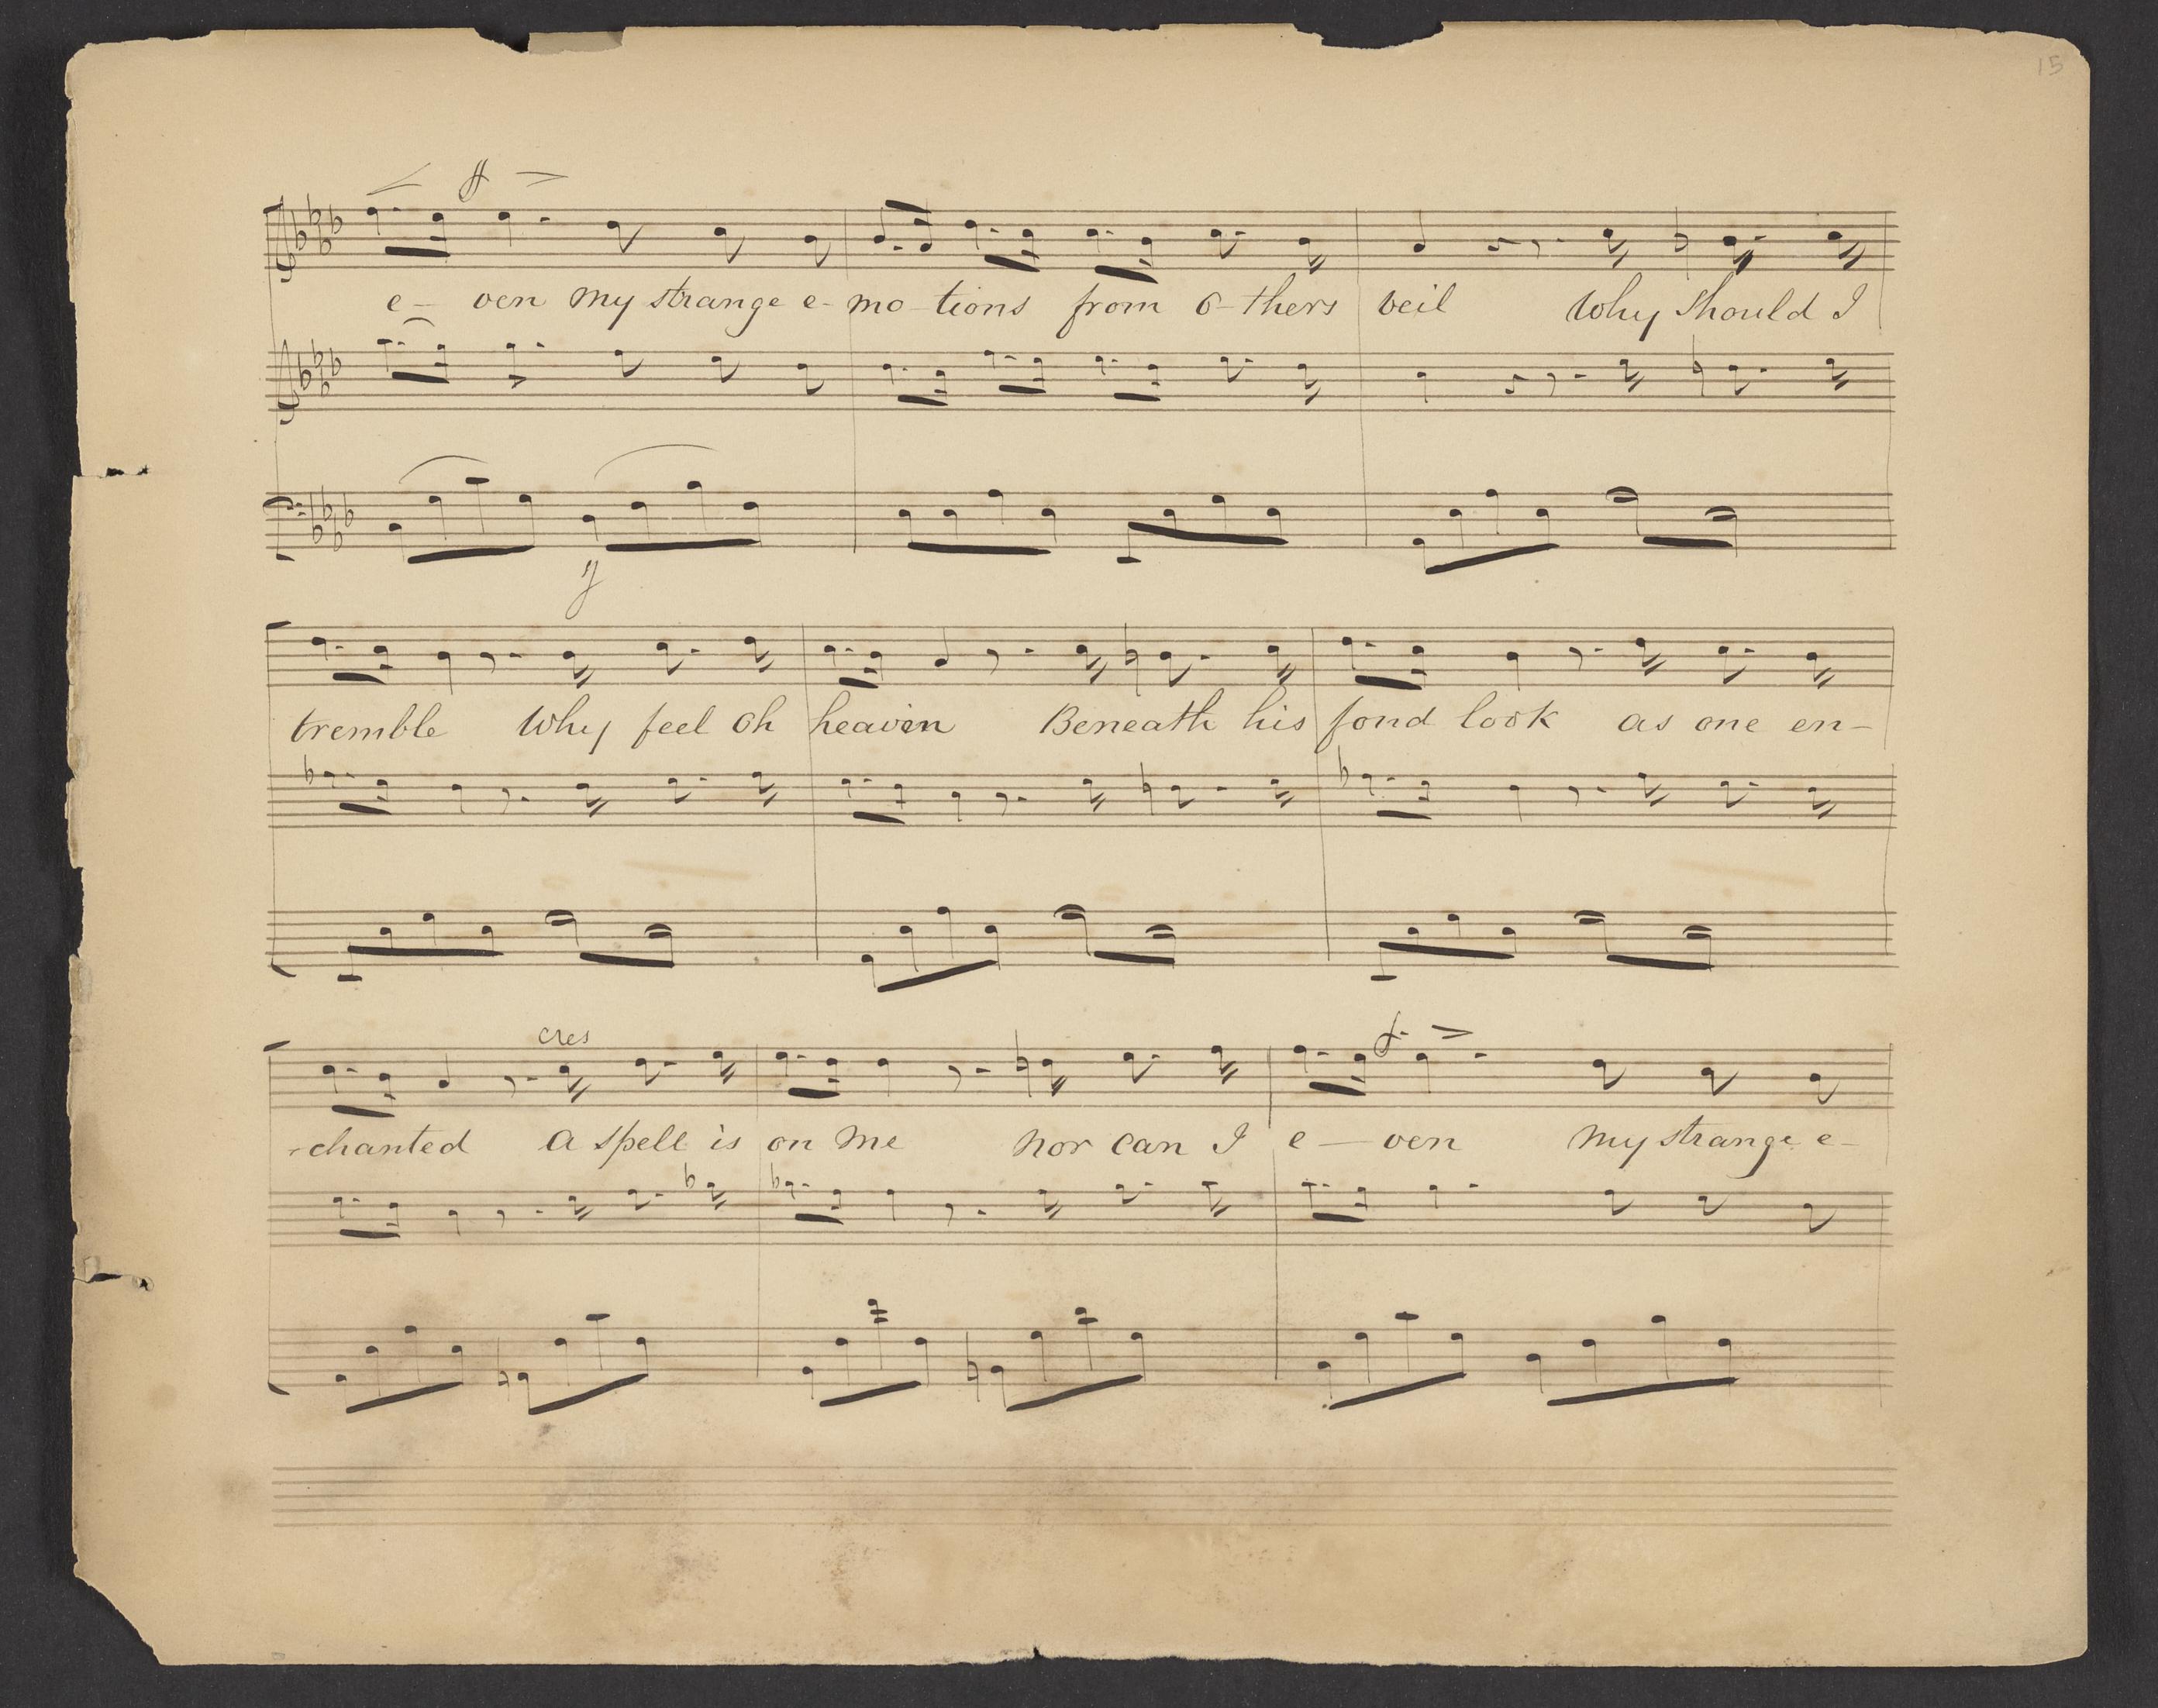 15
ff
e- ven my strange e- mo-tions from o-thers veil Why should I
tremble Why feel oh heaven Beneath his fond look as one en-
cres f.
-chanted a spell is on me nor can I e- ven my strange e-